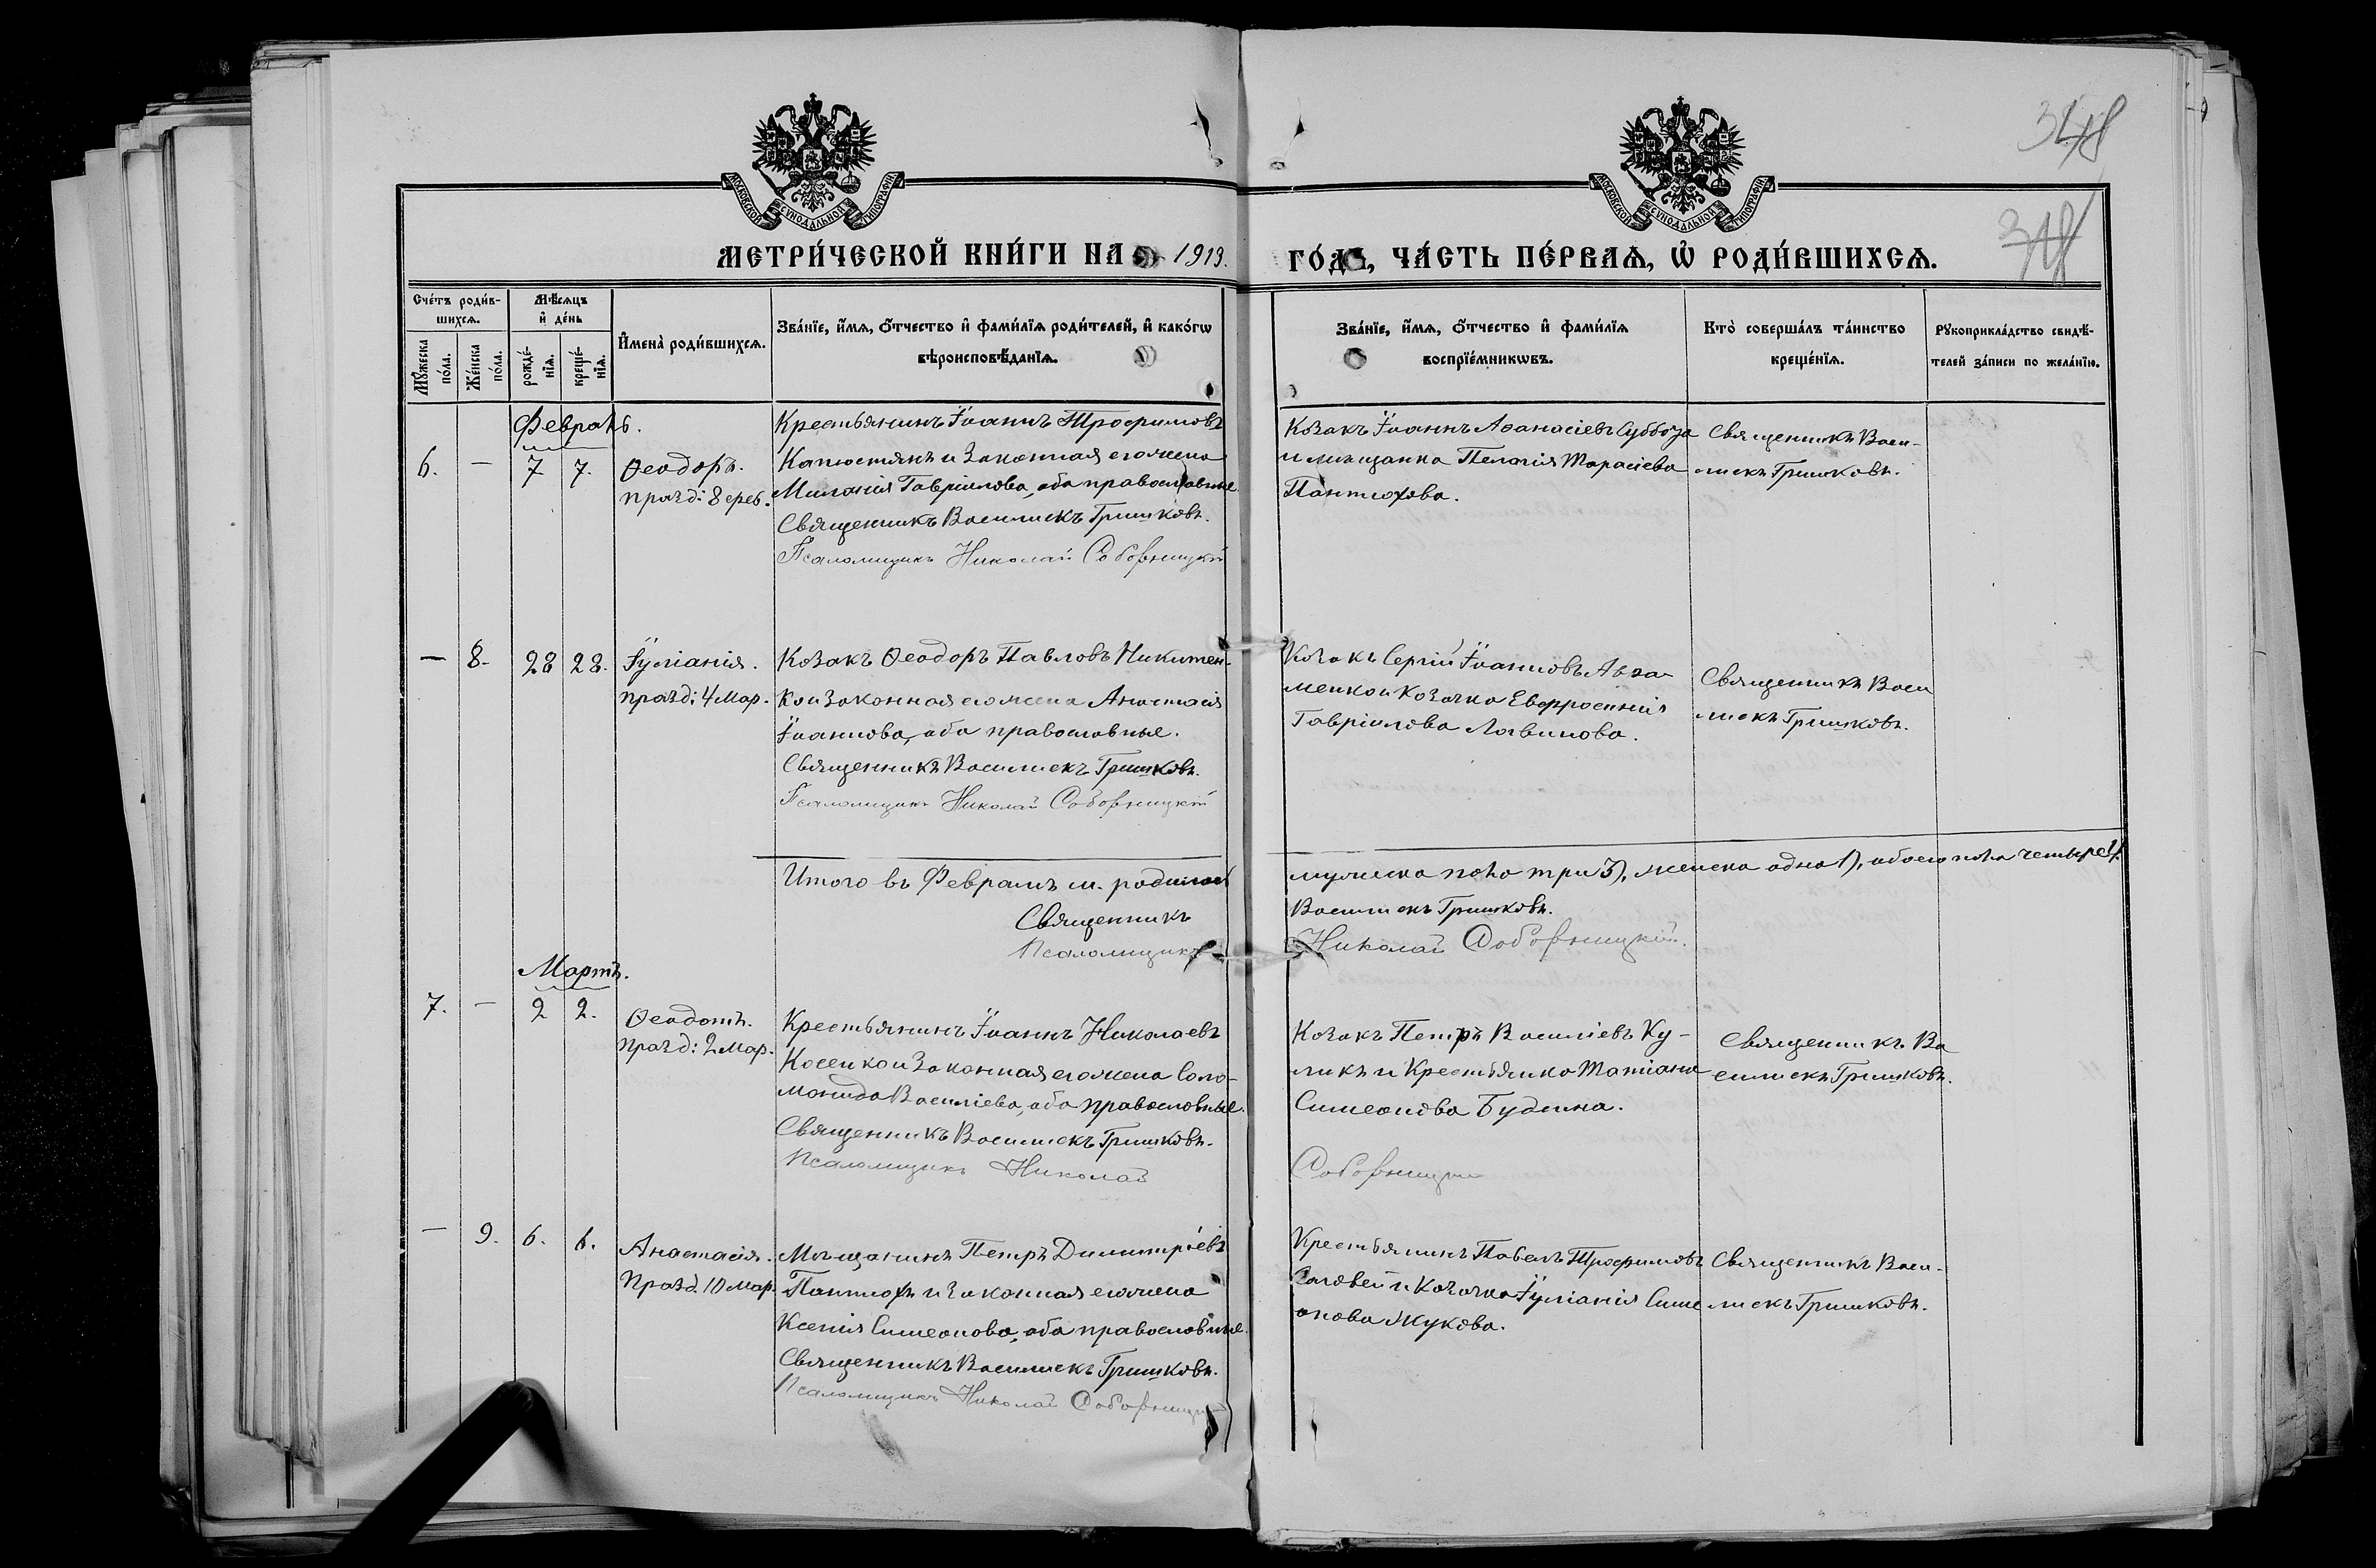 348
318
МОСКОВСКОЙ СѴНОДАЛЬНОЙ ТИПОГРАФІИ
МОСКОВСКОЙ СѴНОДАЛЬНОЙ ТИПОГРАФІИ
МЕТРИ́ЧЕСКОЙ КНИ́ГИ НА 1913.
ГО́ДЪ, ЧА́СТЬ ПЕ́РВАѦ, Ѡ҆ РОДИ́ВШИХСѦ.
Сче́тъ роди́в-
шихсѧ.
Мꙋ́жеска по́ла.
Же́нска по́ла.
Мѣ́сѧцъ
и҆ де́нь
рожде́-
нїѧ.
креще́-
нїѧ.
И҆мена̀ роди́вшихсѧ.
Зва́нїе, и҆́мѧ, ѻ҆́тчество и҆ фами́лїѧ роди́телей, и҆ како́гѡ
вѣроисповѣ́данїѧ.
Зва́нїе, и҆́мѧ, ѻ҆́тчество и҆ фами́лїѧ
воспрїе́мникѡвъ.
Кто̀ соверша́лъ та́инство
креще́нїѧ.
Рꙋкоприкла́дство свидѣ́-
телей за́писи по жела́нїю.
Февраль.
6. — 7 7. Ѳеодоръ.
празд: 8 фев.
Крестьянинъ Іоаннъ Трофимовъ
Капюстянъ и законная его жена
Миланія Гавріилова, оба православные.
Священникъ Василискъ Гришковъ.
Псаломщикъ Николай Соборницкій
Козакъ Іоаннъ Аѳанасіевъ Суббота
и мѣщанка Пелагія Тарасіева
Пантюхова.
Священникъ Васи-
лискъ Гришковъ.
— 8. 28 28. Іуліанія.
празд: 4 мар.
Козакъ Ѳеодоръ Павловъ Никитен-
ко и законная его жена Анастасія
Іоаннова, оба православные.
Священникъ Василискъ Гришковъ.
Псаломщикъ Николай Соборницкій
Козакъ Сергій Іоанновъ Авра-
менко и козачка Евфросинія
Гавріилова Логвинова.
Священникъ Васи
лискъ Гришковъ.
Итого въ Февралѣ м. родилось
мужеска пола три 3), женска одна 1), обоего пола четыре 4.
Священникъ
Василискъ Гришковъ.
Псаломщикъ
Николай Соборницкій.
Мартъ.
7. — 2 2. Ѳеодотъ.
празд: 2 мар.
Крестьянинъ Іоаннъ Николаевъ
Косенко и законная его жена Соло-
монида Василіева, оба православные.
Священникъ Василискъ Гришковъ.
Псаломщикъ Николай
Соборницкій
Козакъ Петръ Василіевъ Ку-
ликъ и крестьянка Татіана
Симеонова Будкина.
Священникъ Ва
силискъ Гришковъ.
— 9. 6. 6. Анастасія.
Празд. 10 мар.
Мѣщанинъ Петръ Димитріевъ
Пантюхъ и законная его жена
Ксенія Симеонова, оба православные.
Священникъ Василискъ Гришковъ.
Псаломщикъ Николай Соборницкій
Крестьянинъ Павелъ Трофимовъ
Соловей и козачка Іуліанія Симе
онова Жукова.
Священникъ Васи-
лискъ Гришковъ.